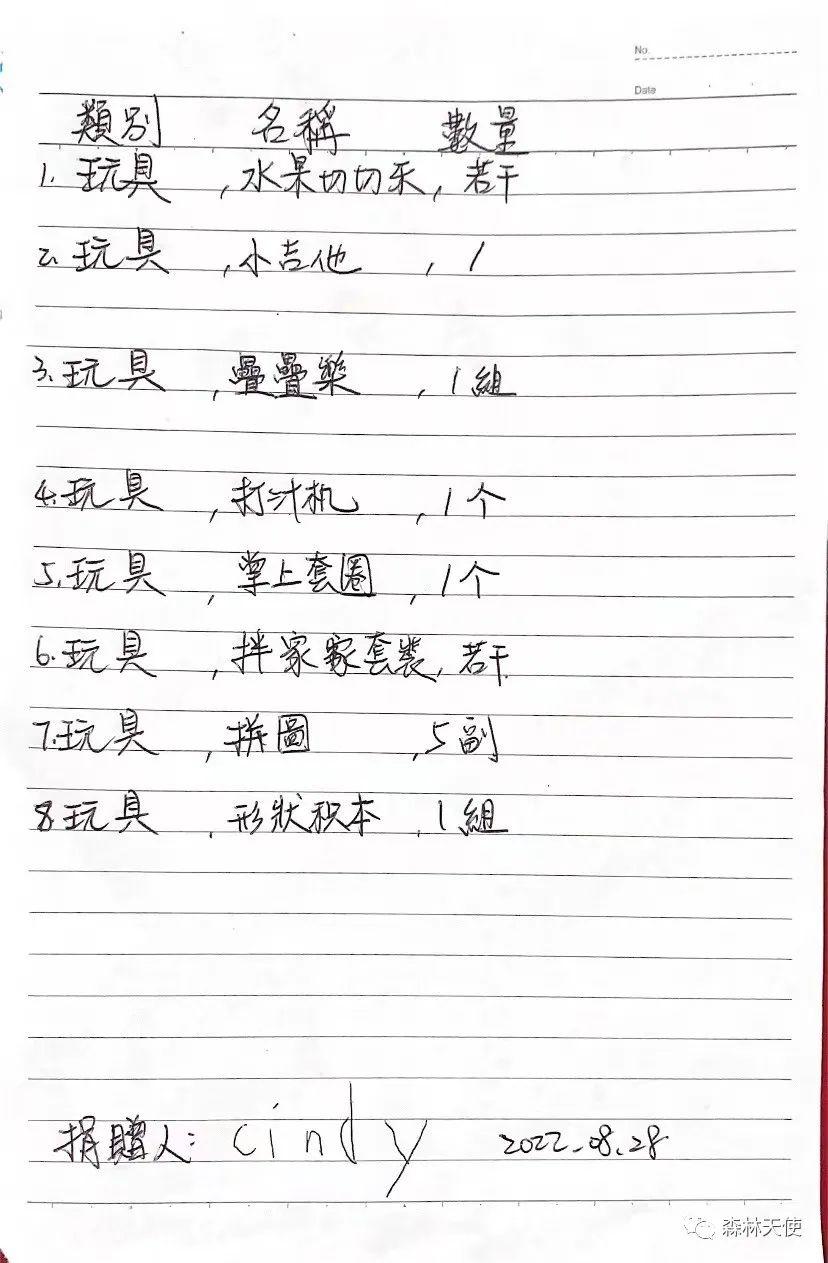 No.
Date
類别 名稱 數量
1. 玩具 , 水果切切乐, 若干
2. 玩具 , 小吉他 , 1
3. 玩具 , 疊疊樂 , 1組
4. 玩具 , 打汁机 , 1个
5. 玩具 , 掌上套圈 , 1个
6. 玩具 , 拌家家套裝, 若干
7. 玩具 , 拼圖 , 5副
8. 玩具 , 形狀积本 , 1組
捐贈人: cindy 2022.08.28
森林天使